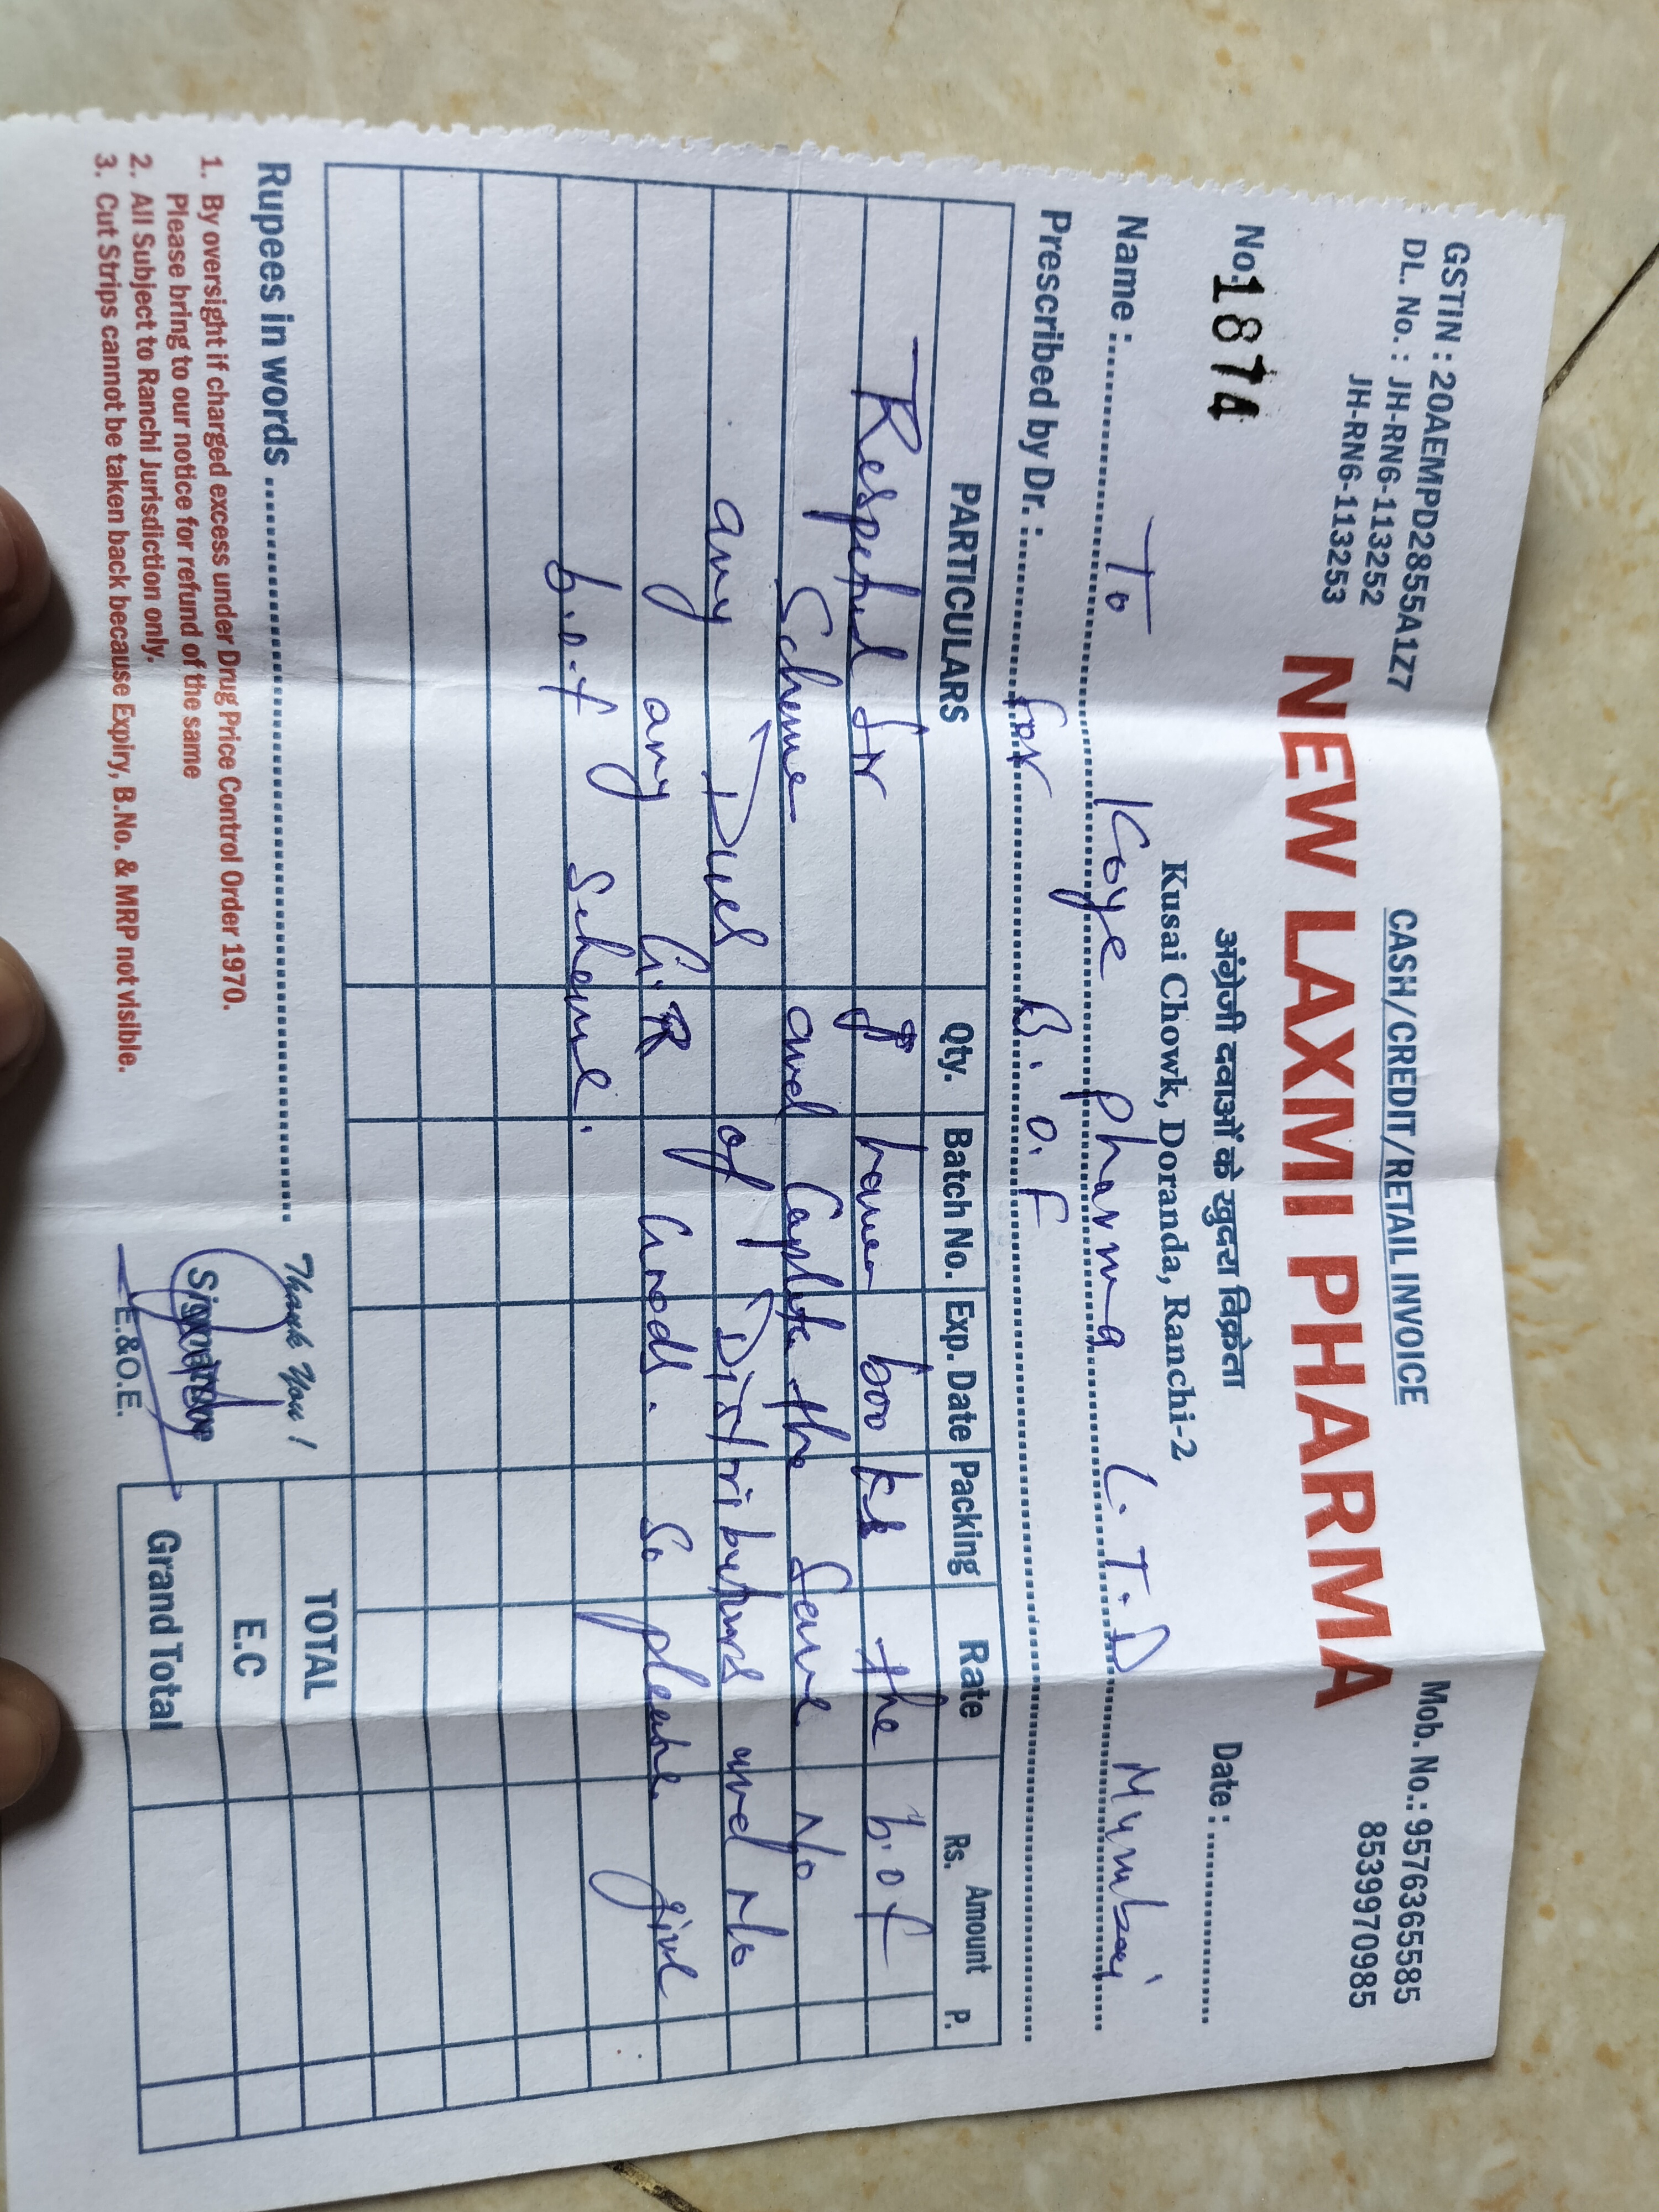 GSTIN : 20AEMPD2855A1Z7
CASH/CREDIT/RETAIL INVOICE
Mob. No.: 9576365585
DL. No. : JH-RN6-113252
8539970985
JH-RN6-113253
NEW LAXMI PHARMA
अंग्रेजी दवाओं के खुदरा विक्रेता
No. 1874
Kusai Chowk, Doranda, Ranchi-2
Date :
Name : To Koye pharma L.T.D Mumbai
Prescribed by Dr. : for B.O.F
PARTICULARS Qty. Batch No. Exp. Date Packing Rate Amount
Rs. P.
Respected Sir I have books the b.o.f
Scheme and the Same No
any Dues of Distributors and No
any any G.R Goods. So please give
b.o.f Scheme.
Rupees in words
Thank You !
TOTAL
1. By oversight if charged excess under Drug Price Control Order 1970.
Please bring to our notice for refund of the same
2. All Subject to Ranchi Jurisdiction only.
3. Cut Strips cannot be taken back because Expiry, B.No. & MRP not visible.
Signature
E.&O.E.
E.C
Grand Total